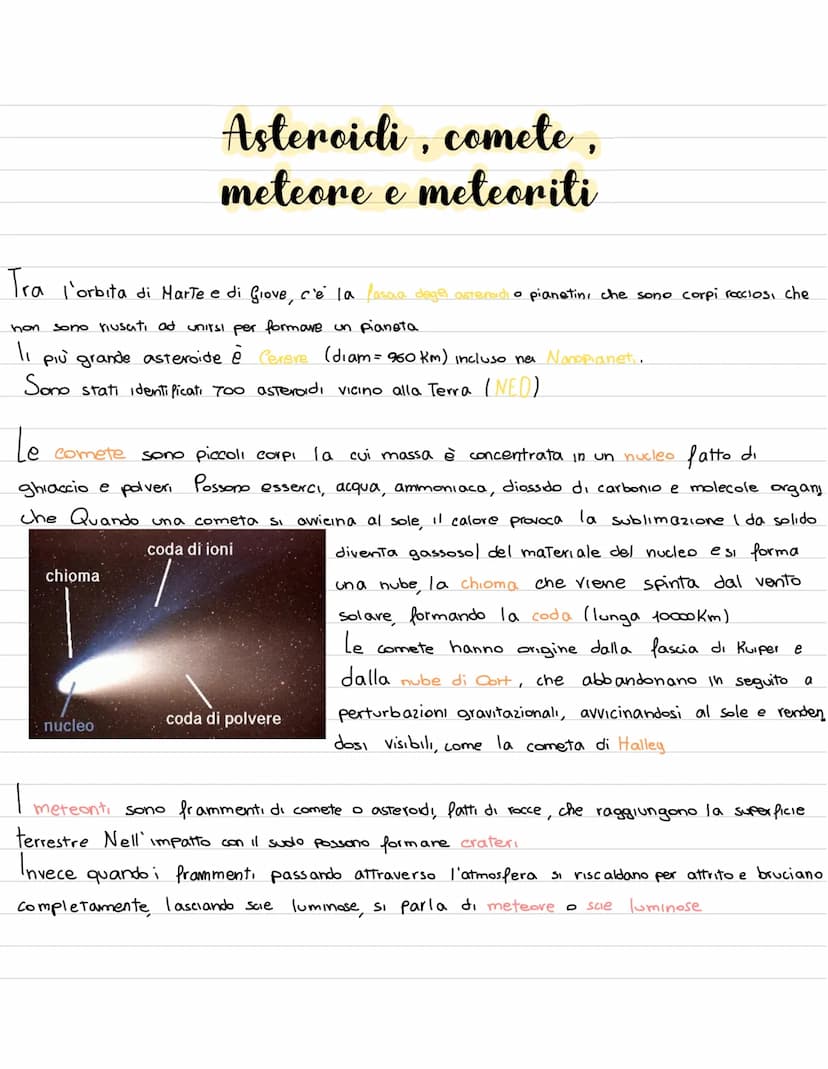 Asteroidi, comete,
meteore e meteoriti
Tra l'orbita di Marte e di Giove, c'è la fascia degli asteroidi o pianetini che sono corpi rocciosi che
non sono riusciti ad unirsi per formare un pianeta
Il più grande asteroide è Cerere (diam= 960 Km) incluso nei Nanopianeti.
Sono stati identificati 700 asteroidi vicino alla Terra (NEO)
Le comete sono piccoli corpi la cui massa è concentrata in un nucleo fatto di
ghiaccio e polveri Possono esserci, acqua, ammoniaca, diossido di carbonio e molecole organi
che Quando una cometa si avvicina al sole, il calore provoca la sublimazione ( da solido
diventa gassoso) del materiale del nucleo e si forma
una nube, la chioma che viene spinta dal vento
solare, formando la coda (lunga 10000Km)
Le comete hanno origine dalla fascia di Kuiper e
dalla nube di Oort, che abbandonano in seguito a
perturbazioni gravitazionali, avvicinandosi al sole e renden
dosi visibili, come la cometa di Halley
chioma
coda di ioni
nucleo
coda di polvere
I meteoriti sono frammenti di comete o asteroidi, fatti di rocce, che raggiungono la superficie
terrestre Nell'impatto con il suolo possono formare crateri
Invece quando i frammenti passando attraverso l'atmosfera si riscaldano per attrito e bruciano
completamente, lasciando scie luminose, si parla di meteore o scie luminose